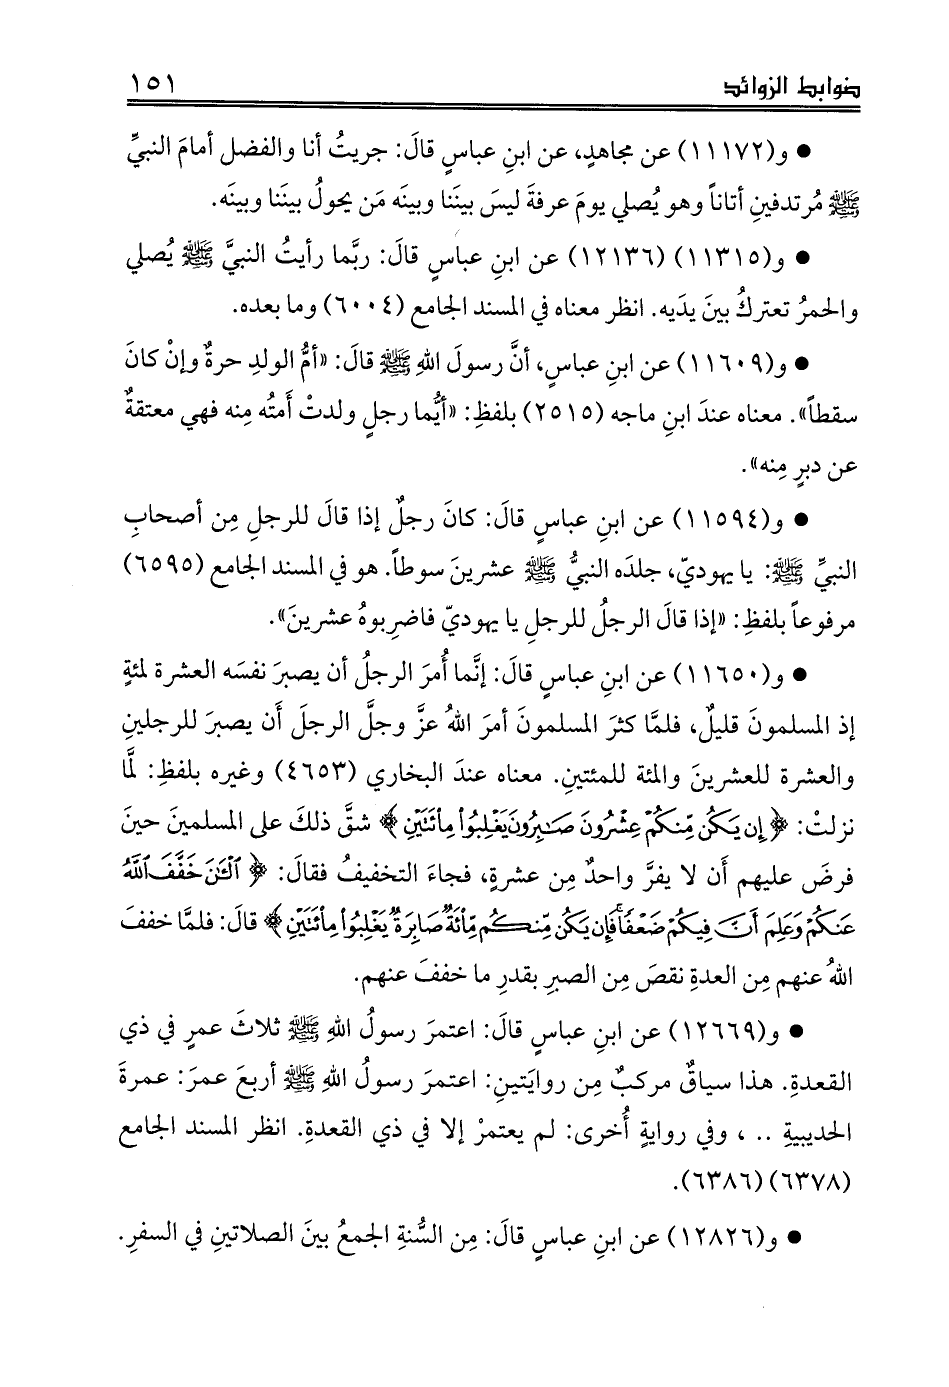 ضوابط الزوائد ١٥١
● و(١١١٧٢) عن مجاهدٍ، عن ابنِ عباسٍ قالَ: جريتُ أنا والفضل أمامَ النبيِّ
ﷺ مُرتدفينِ أتاناً وهو يُصلي يومَ عرفةَ ليسَ بينَنا وبينَه مَن يحولُ بينَنا وبينَه.
● و(١١٣١٥) (١٢١٣٦) عن ابنِ عباسٍ قالَ: ربَّما رأيتُ النبيَّ ﷺ يُصلي
والحمرُ تعتركُ بينَ يدَيه. انظر معناه في المسند الجامع (٦٠٠٤) وما بعده.
● و(١١٦٠٩) عن ابنِ عباسٍ، أنَّ رسولَ اللهِ ﷺ قالَ: «أمُّ الولدِ حرةٌ وإنْ كانَ
سقطاً». معناه عندَ ابنِ ماجه (٢٥١٥) بلفظِ: «أيُّما رجلٍ ولدتْ أَمتُه مِنه فهي معتقةٌ
عن دبرٍ مِنه».
● و(١١٥٩٤) عن ابنِ عباسٍ قالَ: كانَ رجلٌ إذا قالَ للرجلِ مِن أصحابِ
النبيِّ ﷺ: يا يهوديّ، جلدَه النبيُّ ﷺ عشرينَ سوطاً. هو في المسند الجامع (٦٥٩٥)
مرفوعاً بلفظِ: «إذا قالَ الرجلُ للرجلِ يا يهوديّ فاضرِبوهُ عشرينَ».
● و(١١٦٥٠) عن ابنِ عباسٍ قالَ: إنَّما أُمرَ الرجلُ أن يصبرَ نفسَه العشرة لمئةٍ
إذ المسلمونَ قليلٌ، فلمَّا كثرَ المسلمونَ أمرَ اللهُ عزَّ وجلَّ الرجلَ أَن يصبرَ للرجلينِ
والعشرة للعشرينَ والمئة للمئتينِ. معناه عندَ البخاري (٤٦٥٣) وغيره بلفظِ: لمَّا
نزلتْ: ﴿إِن يَكُن مِّنكُمْ عِشْرُونَ صَابِرُونَ يَغْلِبُوا۟ مِا۟ئَتَيْنِ﴾ شقَّ ذلكَ على المسلمينَ حينَ
فرضَ عليهم أَن لا يفرَّ واحدٌ مِن عشرةٍ، فجاءَ التخفيفُ فقالَ: ﴿ٱلْـَٰٔنَ خَفَّفَ ٱللَّهُ
عَنكُمْ وَعَلِمَ أَنَّ فِيكُمْ ضَعْفًا ۚ فَإِن يَكُن مِّنكُم مِّا۟ئَةٌ صَابِرَةٌ يَغْلِبُوا۟ مِا۟ئَتَيْنِ﴾ قالَ: فلمَّا خففَ
اللهُ عنهم مِن العدةِ نقصَ مِن الصبرِ بقدرِ ما خففَ عنهم.
● و(١٢٦٦٩) عن ابنِ عباسٍ قالَ: اعتمرَ رسولُ اللهِ ﷺ ثلاثَ عمرٍ في ذي
القعدةِ. هذا سياقٌ مركبٌ مِن روايَتينِ: اعتمرَ رسولُ اللهِ ﷺ أربعَ عمرَ: عمرةَ
الحديبيةِ .. ، وفي روايةٍ أُخرى: لم يعتمرْ إلا في ذي القعدةِ. انظر المسند الجامع
(٦٣٧٨) (٦٣٨٦).
● و(١٢٨٢٦) عن ابنِ عباسٍ قالَ: مِن السُّنةِ الجمعُ بينَ الصلاتينِ في السفرِ.